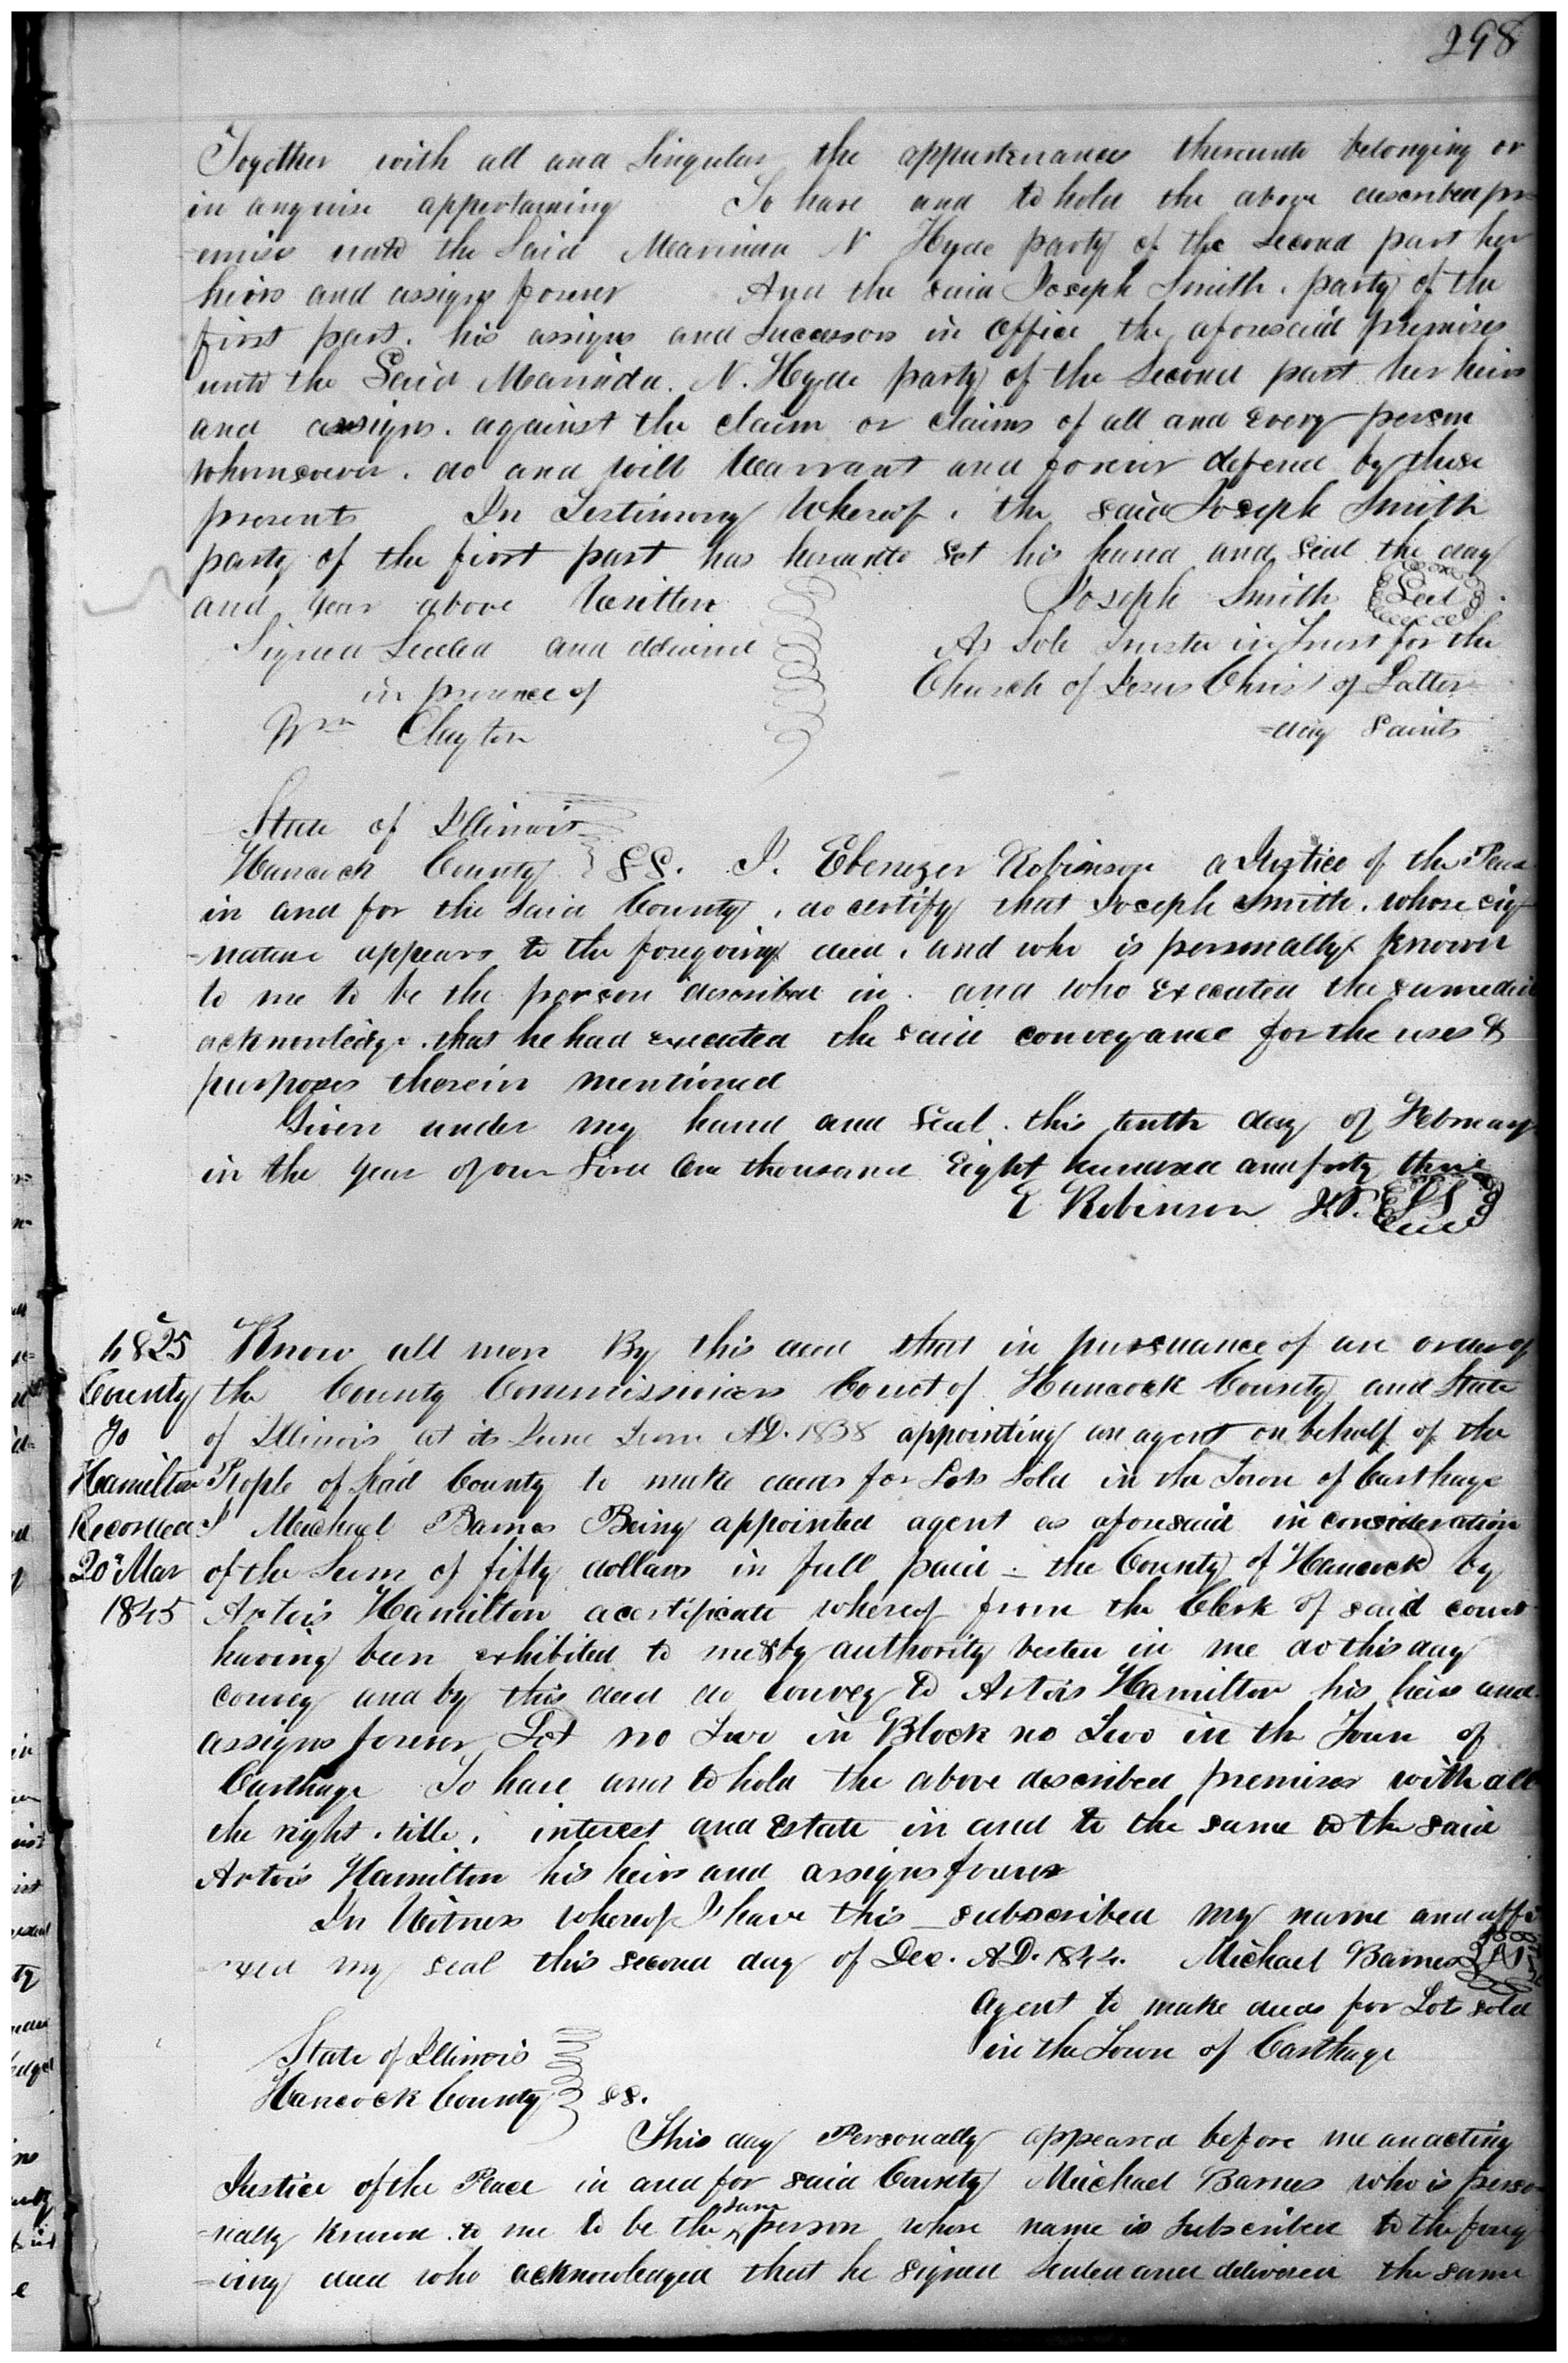 298
Together with all and Singular the appurtenances thereunto belonging or
in anywise appertaining To have and to hold the above described pr-
-emises unto the Said Marinda N Hyde party of the Second part her
heirs and assigns forever And the said Joseph Smith. party of the
first part. his assigns and Successors in office the aforesaid premises
unto the Said Marinda. N. Hyde party of the Second part her heirs
and assigns. against the claim or claims of all and Every person
whomsoever. do and will Warrant and forever defend by these
presents In Testimony Whereof. the said Joseph Smith
party of the first part has hereunto Set his hand and Seal the day
and year above Written Joseph Smith Seal
Signed Sealed and delivered As Sole Trustee in Trust for the
in presence of Church of Jesus Christ of Latter
Wm Clayton -day Saints
State of Illinois
Hancock County SS. I. Ebenezer Robinson a Justice of the Peace
in and for the Said County, do certify that Joseph Smith. whose sig-
-nature appears to the foregoing deed, and who is personally known
to me to be the person described in. and who Executed the same did
acknowledge. that he had executed the said conveyance for the uses &
purposes therein mentioned
Given under my hand and Seal. this tenth day of February
in the year of our Lord One thousand Eight hundred and forty three
E Robinson J.P. LS
4825 Know all men By this deed that in pursuance of an order of
County the County Commissioners Court of Hancock County and State
To of Illinois at its June Term A.D. 1838 appointing an agent on behalf of the
Hamilton People of Said County to make deeds for Lots Sold in the Town of Carthage
Recorded I Michael Barnes Being appointed agent as aforesaid in consideration
20" Mar of the Sum of fifty dollars in full paid - the County of Hancock by
1845 Artois Hamilton a certificate whereof from the Clerk of said court
having been exhibited to me & by authority vested in me do this day
convey and by this deed do convey to Artois Hamilton his heirs and
assigns forever Lot no Two in Block no Two in the Town of
Carthage To have and to hold the above described premises with all
the right. title. interest and Estate in and to the same to the said
Artois Hamilton his heirs and assigns forever
In Witness whereof I have this subscribed my name and affi
-xed my seal this second day of Dec. A.D. 1844. Michael Barnes
Agent to make deeds for Lots sold
State of Illinois in the Town of Carthage
Hancock County ss.
This day Personally appeared before me an acting
Justice of the Peace in and for said County Michael Barnes who is perso-
-nally known to me to be the same person whose name is Subscribed to the forego
-ing deed who acknowledged that he signed Sealed and delivered the same